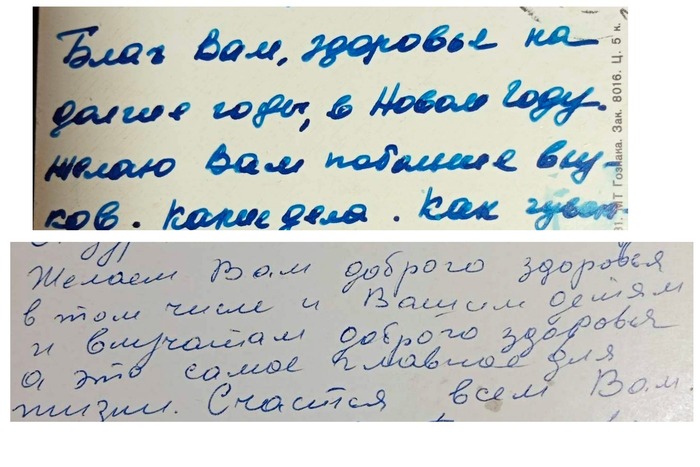 Благ Вам, здоровье на
долгие годы, в Новом Году.
желаю Вам побольше вну-
ков. Какие дела. Как чувст
91. МТ Гознака. Зак. 8016. Ц. 5 к.
Желаем Вам доброго здоровья
в том числе и Вашим детям
и внучатам доброго здоровья
а это самое главное для
жизни. Счастья всем Вам.